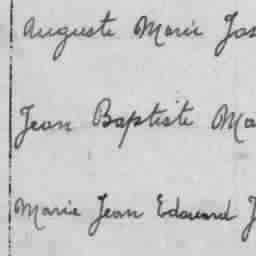 Auguste Marie Jos
Jean Baptiste Ma
Marie Jean Edouard J